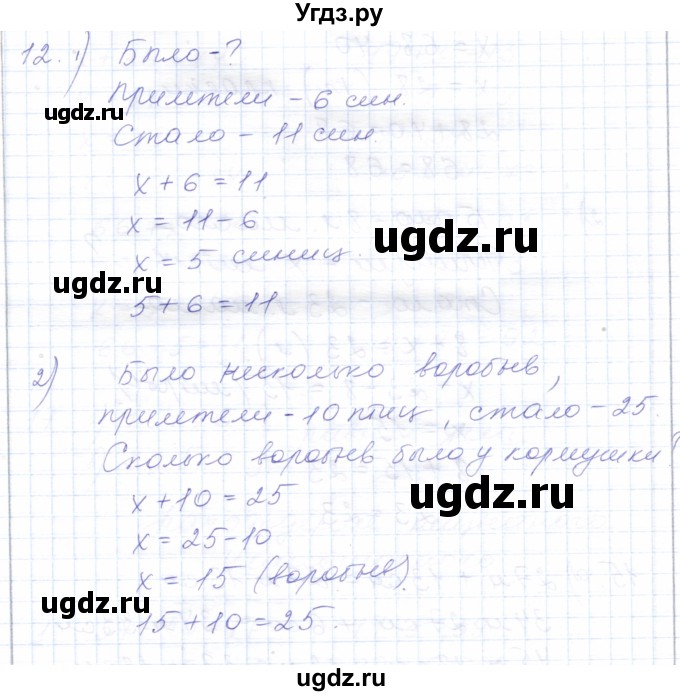 Угдз.ру
12. 1) Было - ?
прилетели - 6 син.
ugdz.ru
Стало - 11 син.
x + 6 = 11
x = 11 - 6
ugdz.ru
x = 5 синиц.
ugdz.ru
5 + 6 = 11
2) Было несколько воробьев,
прилетели - 10 птиц, стало - 25.
Сколько воробьев было у кормушки?
ugdz.ru
x + 10 = 25
x = 25 - 10
x = 15 (воробьев).
ugdz.ru
15 + 10 = 25.
ugdz.ru